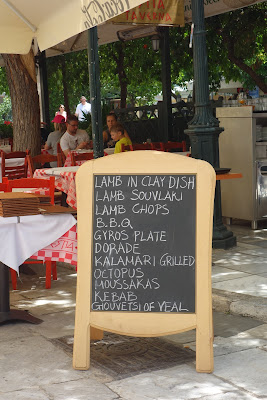 LAMB IN CLAY DISH
LAMB SOUVLAKI
LAMB CHOPS
B.B.Q
GYROS PLATE
DORADE
KALAMARI GRILLED
OCTOPUS
MOUSSAKAS
KEBAB
GIOUVETSI OF VEAL